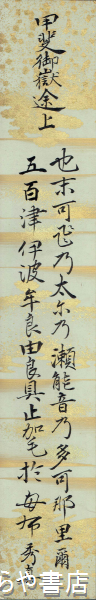 甲斐御嶽途上
也末可飛乃太尓乃瀬能音乃多可那里爾
五百津伊波牟良由良具止加毛於毋布
秀真
らや書店